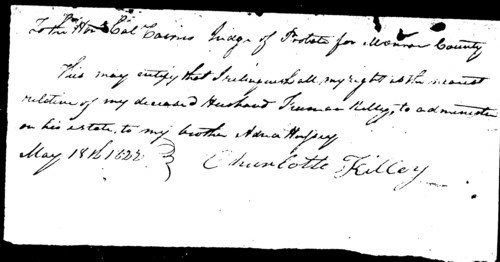 To the Hon. Col. Cairns Judge of Probate for Monroe County
This may certify that I relinquish all my right as the nearest
relative of my deceased Husband Truman Killey, to administer
on his estate, to my brother Hussey
May 18th 1822
Charlotte Killey